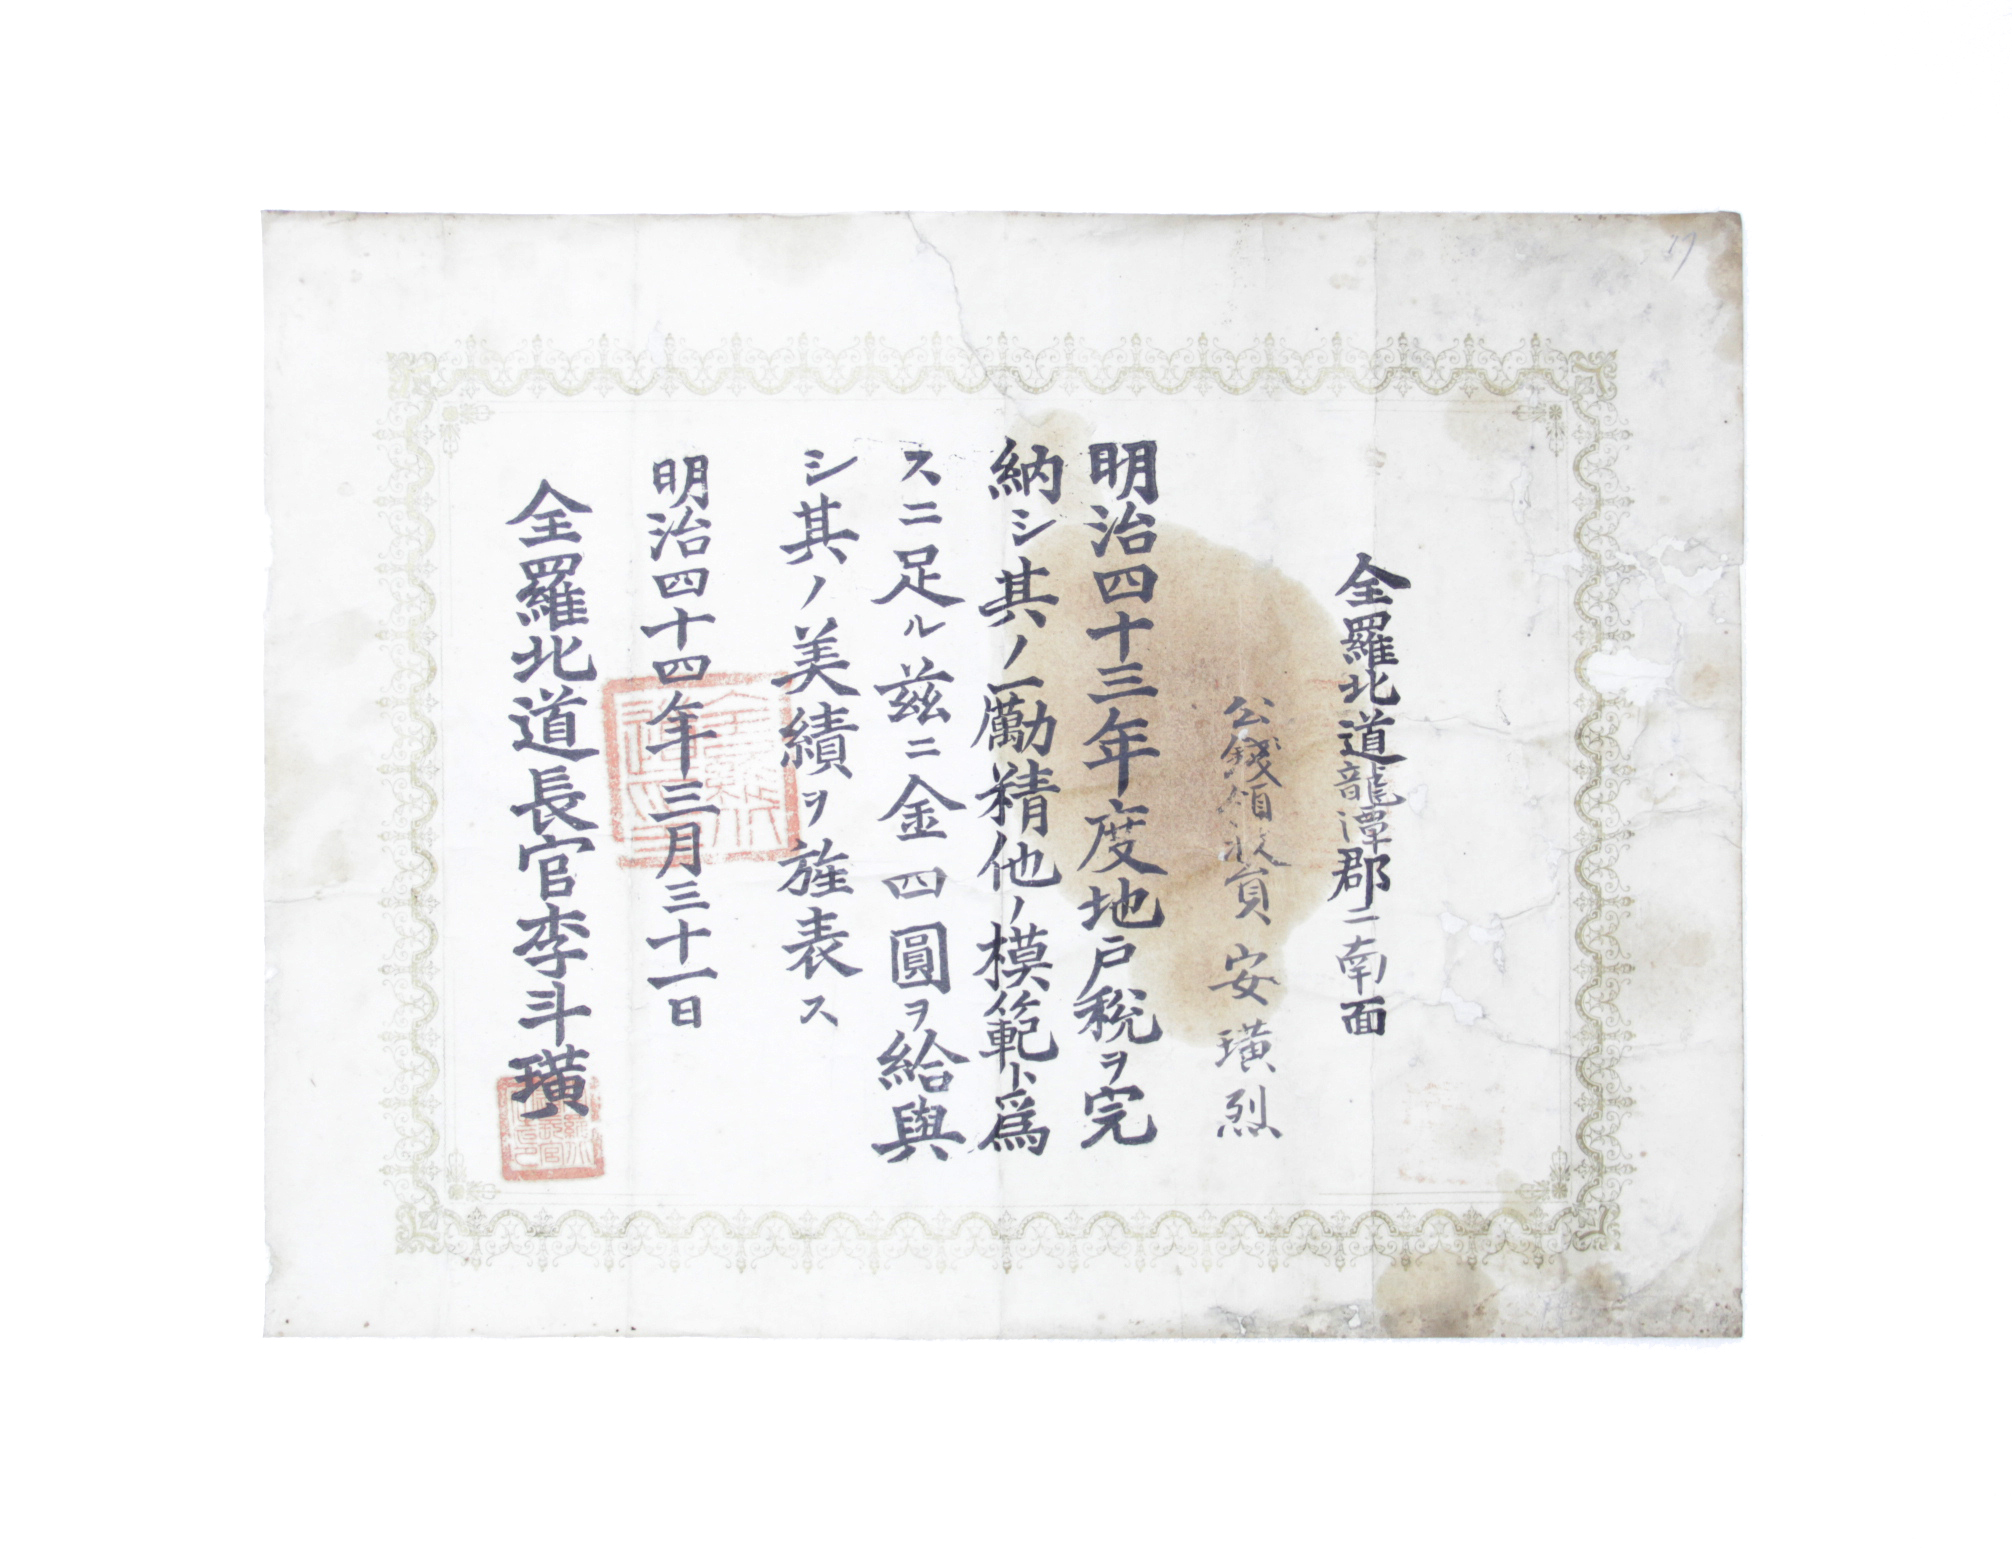 全羅北道龍潭郡二南面
公錢領收員 安璜烈
明治四十三年度地戸税ヲ完
納シ其ノ一勵精他ノ模範ト爲
スニ足ル茲ニ金四圓ヲ給與
シ其ノ美績ヲ旌表ス
明治四十四年三月三十一日
全羅北道長官李斗璜